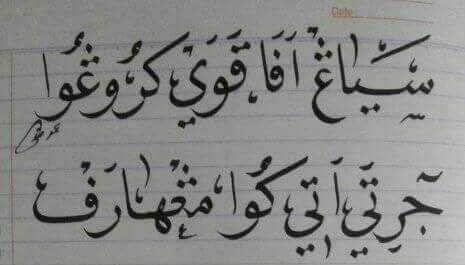 Date
سِيَاڠْ اَفَا قَوَيْ كَرُوڠُوا
جرِتَي اَتِي كُوا مڠْهارَفْ